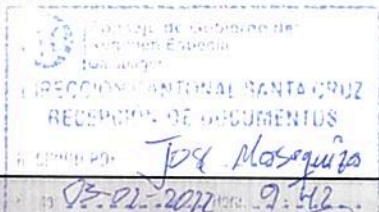 Consejo de Gobierno del
Régimen Especial
Galápagos
DIRECCION CANTONAL SANTA CRUZ
RECEPCION DE DOCUMENTOS
José Masaquiza
03-02-2022 9:42